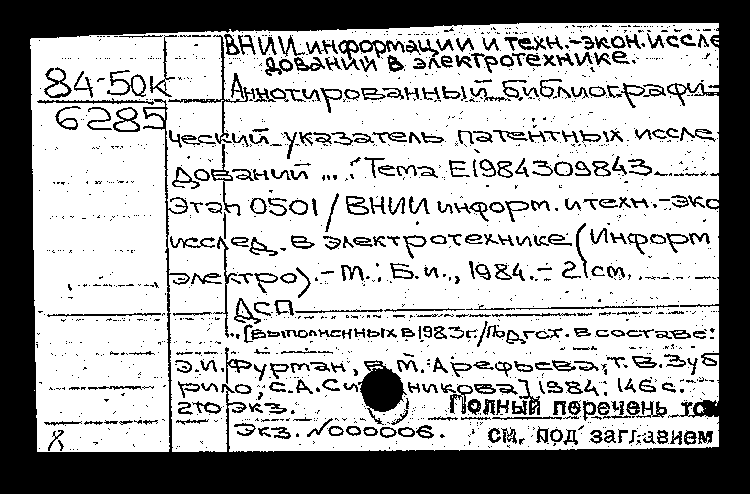 ВНИИ информации и техн.-экон. иссле
дований в электротехнике.
84-50к
6285
Аннотированный библиографи-
ческий указатель патентных иссле
дований ... : Тема Е1984309843
Этап 0501 / ВНИИ информ. и техн.-эко
исслед. в электротехнике (Информ
электро). - М. : Б.и., 1984. - 21 см.
ДСП
... [Выполненных в 1983 г. / Подгот. в составе:
Э.И. Фурман, В.М. Арефьева, Т.В. Зуб
рило, С.А. никова] 1984. 146 с.
210 экз.
Экз. №000006.
Полный перечень
см. под заглавием